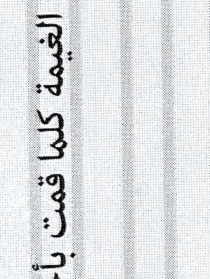 الغيمة كلما قمت بأ